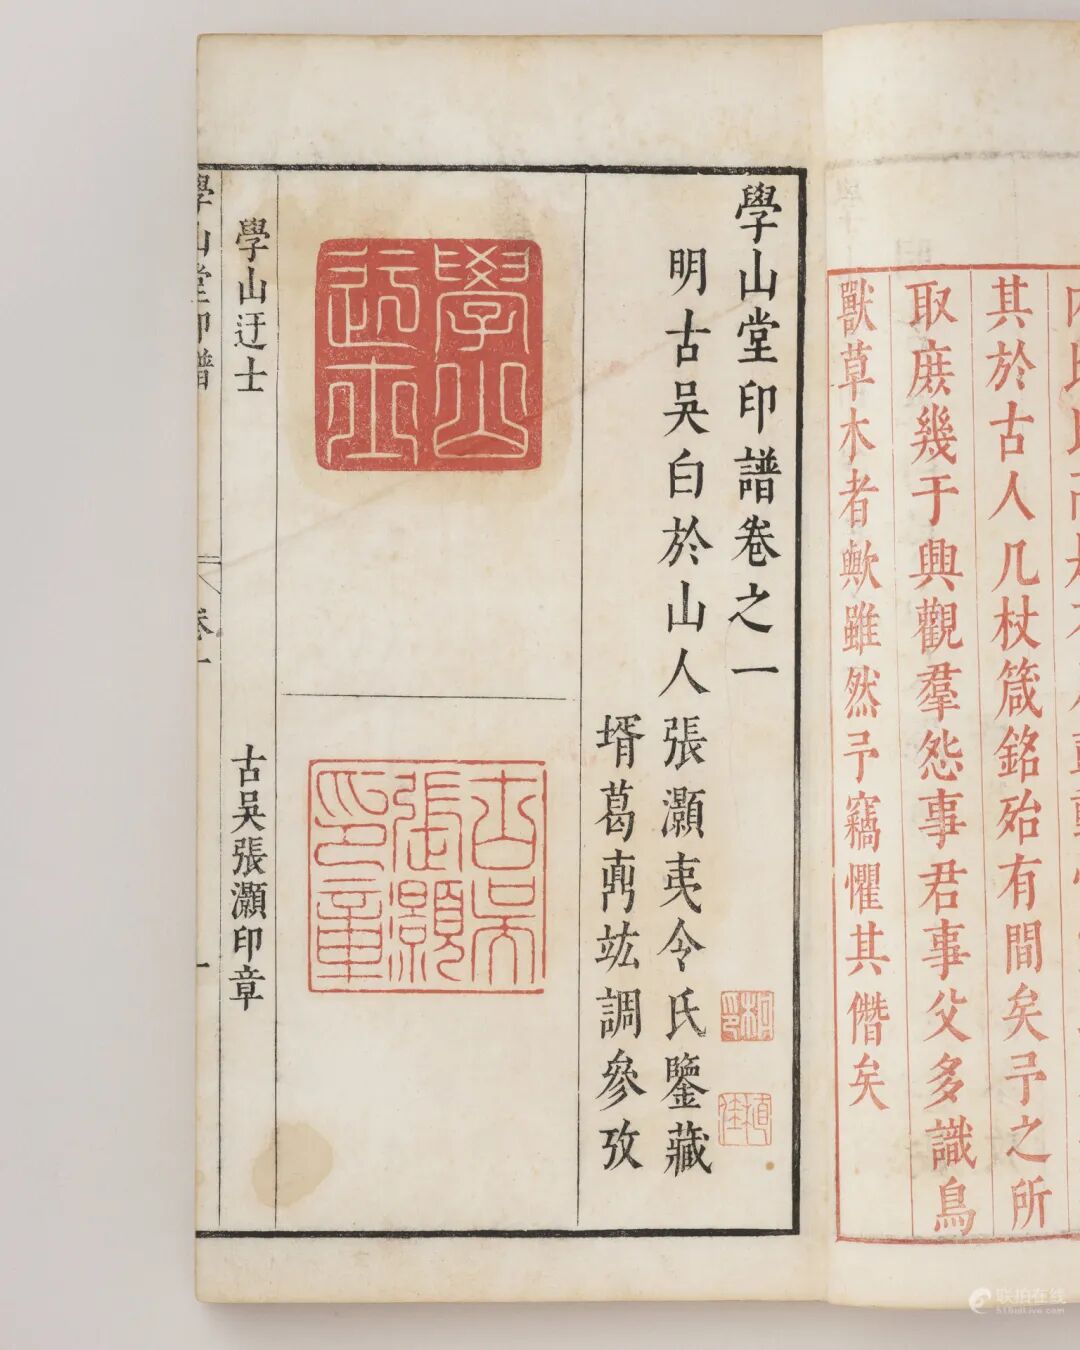 其於古人几杖箴銘殆有間矣予之所
取庶幾于興觀羣怨事君事父多識鳥
獸草木者歟雖然予竊懼其僭矣
學山堂印譜卷之一
明古吳白於山人張灝夷令氏鑒藏
壻葛竑調參攷
學山迂士
古吳張灝印章
學山迂士
古吳張灝印章
學山堂印譜
卷一
一
联拍在线